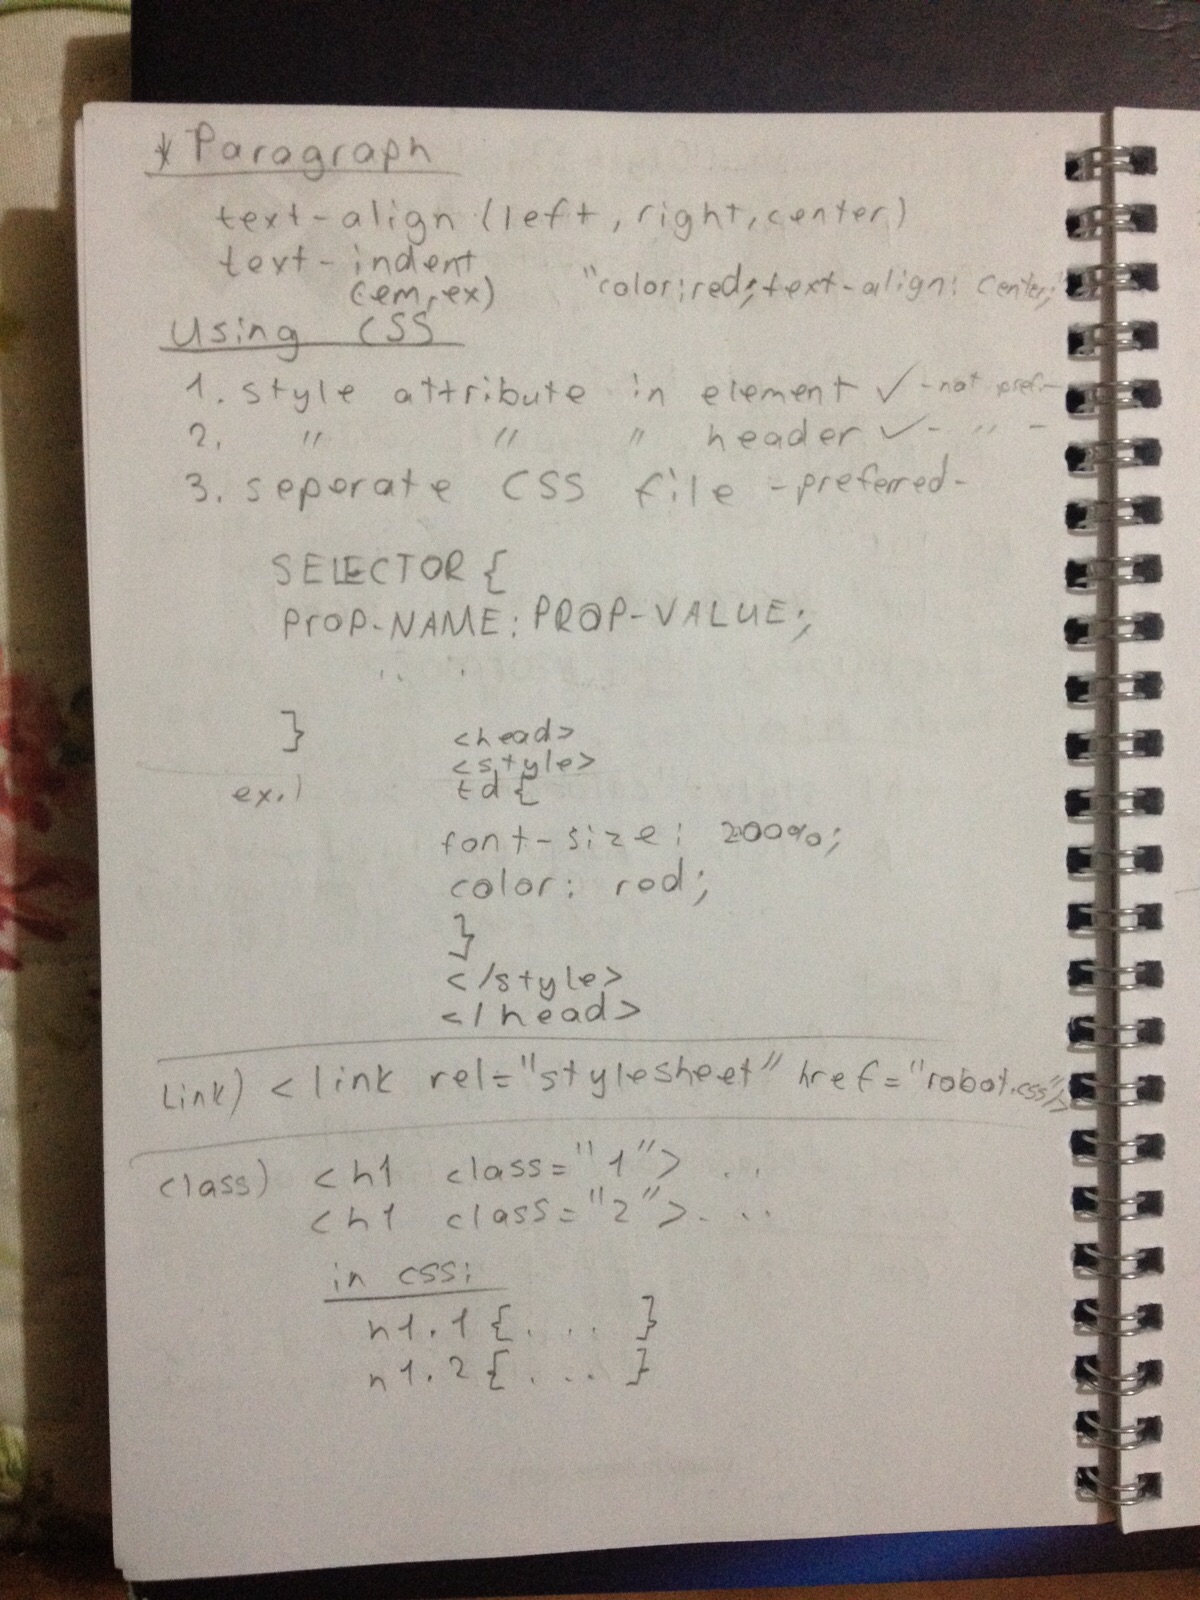 * Paragraph
text-align (left, right, center)
text-indent
(em, ex) "color:red; text-align: center;
Using CSS
1. style attribute in element ✓ -not pref.-
2. " " " header ✓ - " -
3. seperate CSS file -preferred-
SELECTOR {
PROP-NAME: PROP-VALUE;
.. .
}
<head>
<style>
ex.) td {
font-size: 200%;
color: red;
}
</style>
</head>
Link) <link rel="stylesheet" href="robot.css"/>
class) <h1 class="1"> ..
<h1 class="2">. ..
in css:
h1.1 {. .. }
h1.2 {. .. }